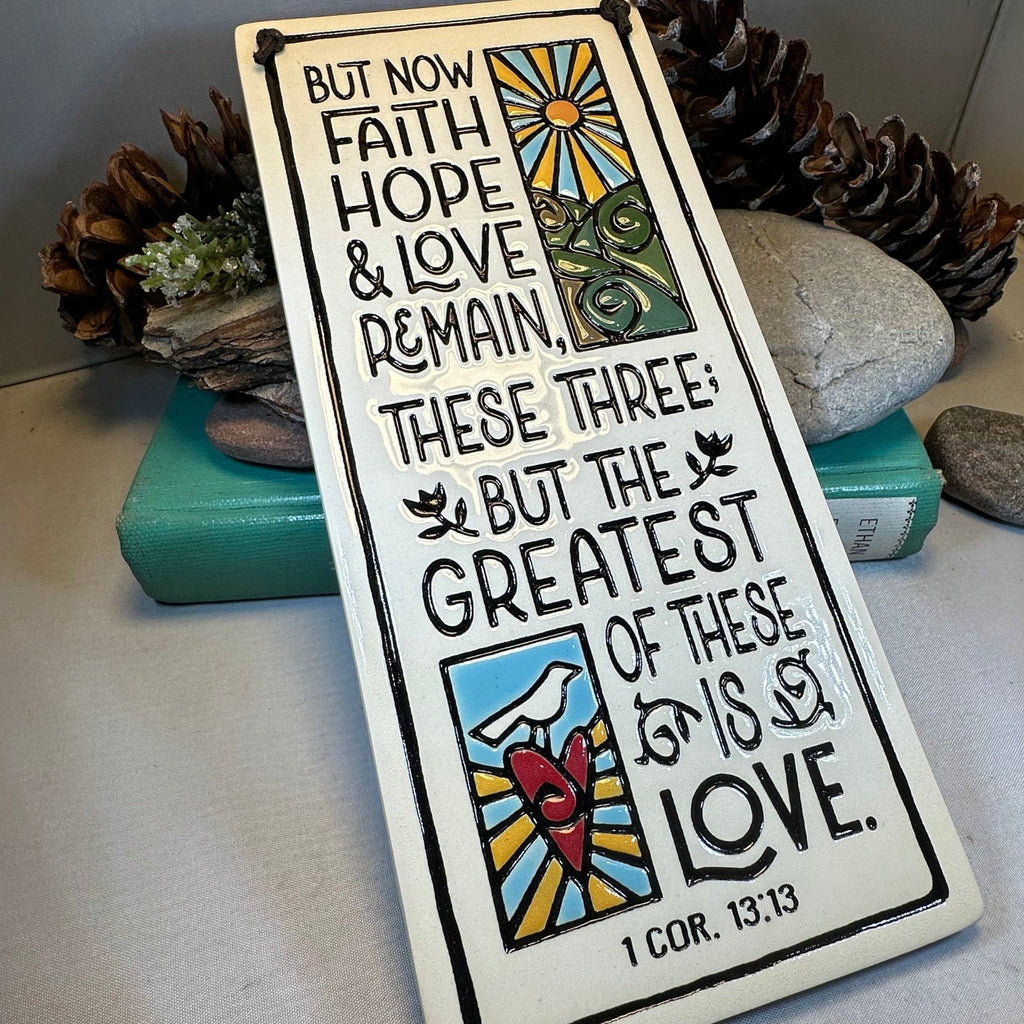 BUT NOW
FAITH
HOPE
& LOVE
REMAIN,
THESE THREE;
BUT THE
GREATEST
OF THESE
IS
LOVE.
1 COR. 13:13
ETHAN